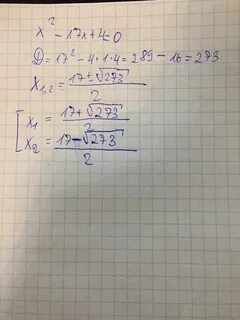 x² - 17x + 4 = 0
D = 17² - 4 · 1 · 4 = 289 - 16 = 273
x₁,₂ = (17 ± √273) / 2
[ x₁ = (17 + √273) / 2
x₂ = (17 - √273) / 2